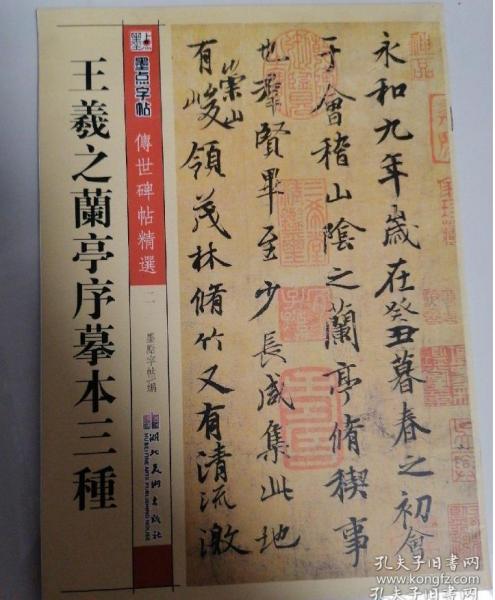 王羲之蘭亭序摹本三種
墨点
墨点字帖
傳世碑帖精選
二
墨點字帖 編
湖北美術出版社
HUBEI FINE ARTS PUBLISHING HOUSE
永和九年歲在癸丑暮春之初會
于會稽山陰之蘭亭脩稧事
也羣賢畢至少長咸集此地
有崇山峻領茂林脩竹又有清流激
孔夫子旧书网
www.kongfz.com
孔夫子旧书网